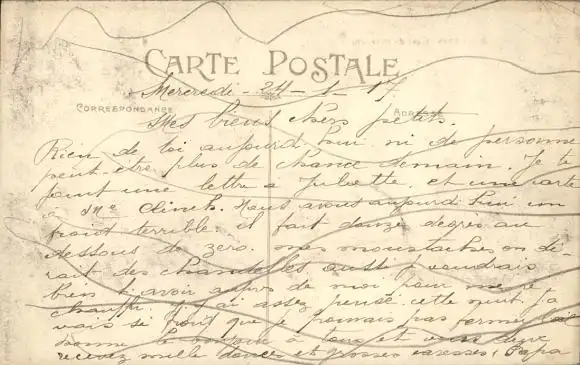 CARTE POSTALE
Mercredi - 24 - 1 - 17
CORRESPONDANCE
Mes biens chers petits.
Rien de toi aujourd'hui ni de personne
peut-être plus de chance demain. Je te
joint une lettre a Juliette et une carte
a Me Clinch. Nous avons aujourd'hui un
froid terrible. il fait douze degrés au
dessous de zero. mes moustaches on di-
rait des chandelles aussi je voudrais
bien t'avoir auprès de moi pour me re
chauffé. j'y ai assez pensé cette nuit. j'a
vais si froid que je pouvais pas fermer l'œil
donne le bonjour à tous et vous deux
recevez mille douces et grosses caresses. Papa